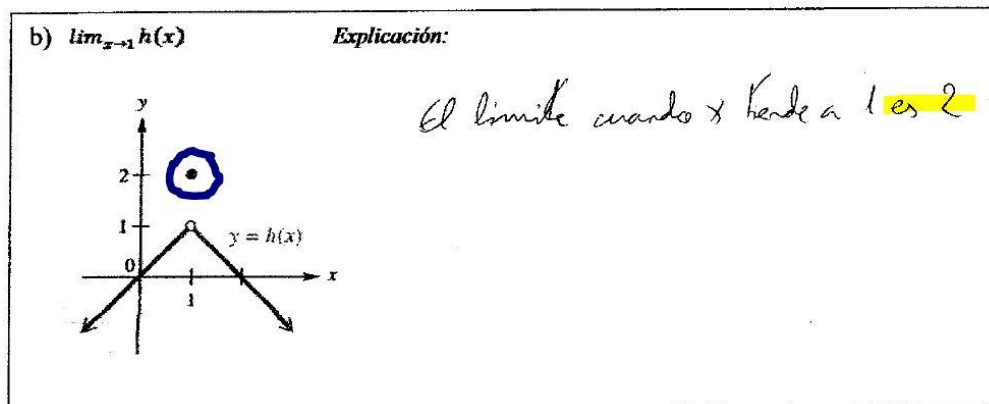 b) lim_{x→1} h(x)
Explicación:
El limite cuando x tiende a 1 es 2
y
2
1
y = h(x)
0
x
1